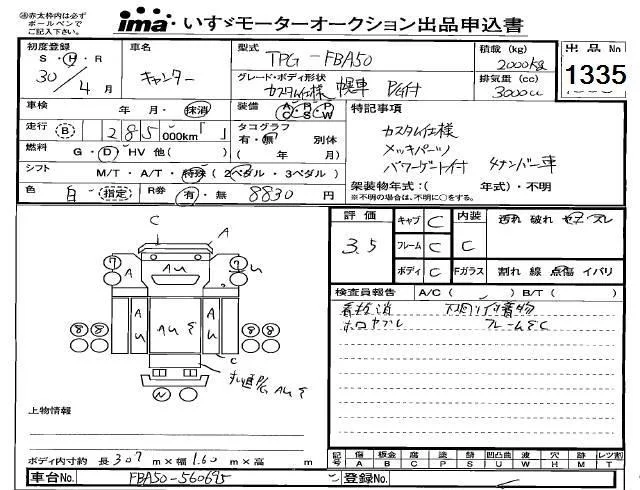 ㊟赤太枠内は必ず
ボールペンで
ご記入下さい。
ima いすゞモーターオークション出品申込書
初度登録
S・H・R
30年 4月
車名
キャンター
型式
TPG-FBA50
グレード・ボディ形状
カスタム仕様 幌車 PG付
積載(kg)
2000kg
排気量(cc)
3000cc
出品No.
1335
車検 年 月・抹消
装備 A・P・P
C・S・W
走行 (B) 285,000km「 」
タコグラフ 別体
有・無( 年 月)
燃料 G・D・HV 他( )
シフト M/T・A/T・特殊(2ペダル・3ペダル)
色 白 指定 R券 有・無 8830円
特記事項
カスタム仕様
メッキパーツ
パワーゲート付 4ナンバー車
架装物年式:( 年式)・不明
※不明の場合は、不明に○をする。
評価 3.5
キャブ C 内装 C
フレーム C
ボディ C Fガラス
汚れ 破れ
割れ 線 点傷 イバリ
検査員報告 A/C( ) B/T( )
下廻り付着物
ホロヤブレ
C A
⑦ ⑦
A U
⑧⑧ ⑧⑧
C
N
上物情報
ボディ内寸約 長 307 m×幅 1.60 m×高 m
記号 傷 A 板金 B 腐 C 塗 P 錆 S 凹凸曲 U 波 W 穴 H 跡 M レツ割 T
車台No. FBA50-560695
登録No.